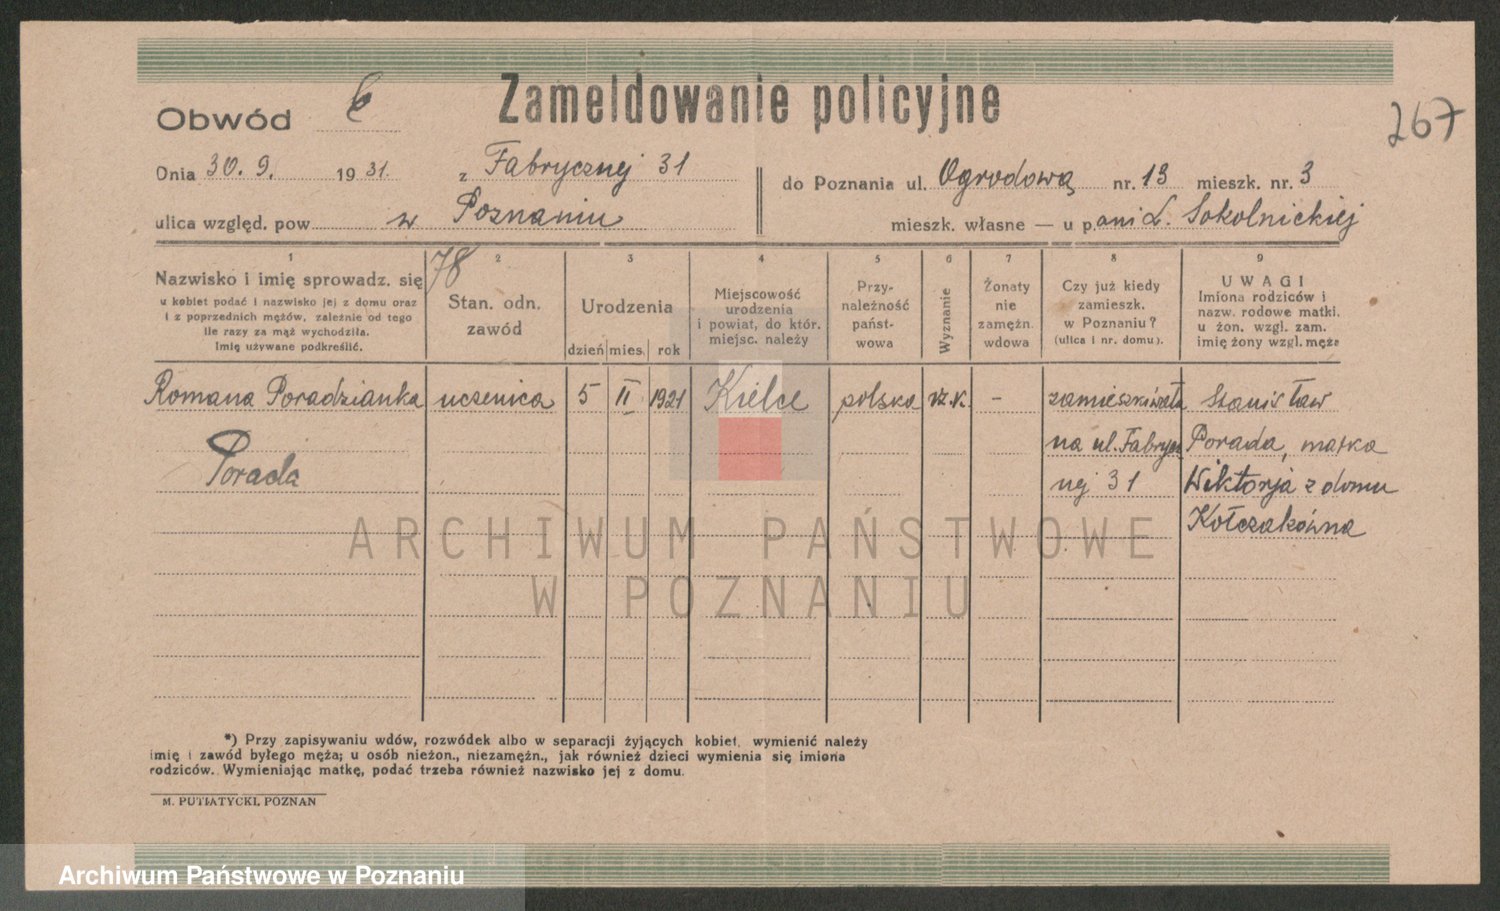 Zameldowanie policyjne
Obwód 6
267
Dnia 30. 9. 1931. z Fabrycznej 31
do Poznania ul. Ogrodową nr. 13 mieszk. nr. 3
ulica względ. pow. w Poznaniu
mieszk. własne — u pani L. Sokolnickiej
1 2 3 4 5 6 7 8 9
78
Nazwisko i imię sprowadz. się
u kobiet podać i nazwisko jej z domu oraz
i z poprzednich mężów, zależnie od tego
ile razy za mąż wychodziła.
Imię używane podkreślić.
Stan. odn.
zawód
Urodzenia
dzień mies. rok
Miejscowość
urodzenia
i powiat, do któr.
miejsc. należy
Przy-
należność
państ-
wowa
Wyznanie
Żonaty
nie
zamężn.
wdowa
Czy już kiedy
zamieszk.
w Poznaniu?
(ulica i nr. domu).
UWAGI
Imiona rodziców i
nazw. rodowe matki.
u żon. wzgl. zam.
imię żony wzgl. męża
Romana Poradzianka uczenica 5 II 1921 Kielce polska rz.k. - zamieszkiwała Stanisław
na ul. Fabrycz Porada, matka
Porada nej 31 Wiktorja z domu
Kołczakówna
ARCHIWUM PAŃSTWOWE
W POZNANIU
*) Przy zapisywaniu wdów, rozwódek albo w separacji żyjących kobiet, wymienić należy
imię i zawód byłego męża; u osób nieżon., niezamężn., jak również dzieci wymienia się imiona
rodziców. Wymieniając matkę, podać trzeba również nazwisko jej z domu.
M. PUTIATYCKI, POZNAŃ
Archiwum Państwowe w Poznaniu